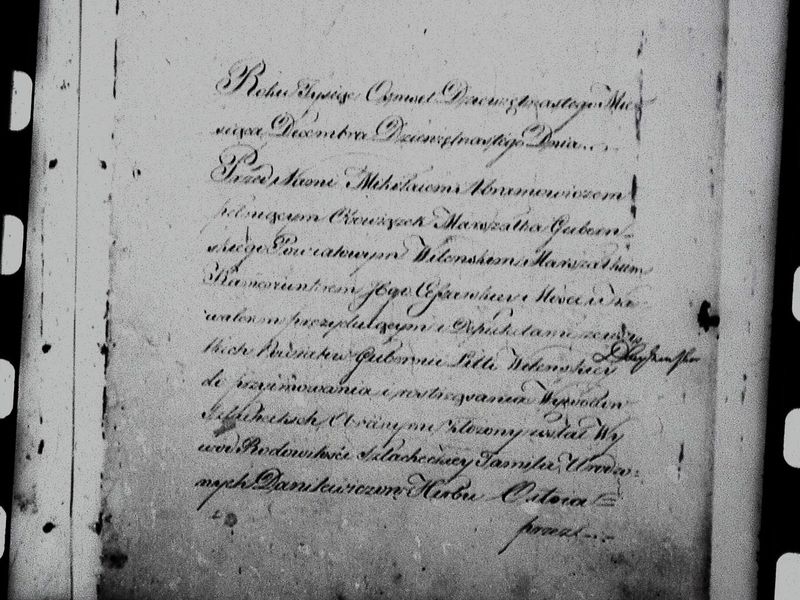 Roku Tysiąc Osmset Dziewiętnastego Mie-
siąca Decembra Dziewiętnastego Dnia...
Przed Nami Mikołaiem Abramowiczem
pełniącym Obowiązek Marszałka Guberń-
skiego Powiatowym Wilenskim Marszałkiem
Kamerjunkrem Jego Cesarskiey Mości i Ka
walerem prezydującym i Deputatami ze wszys
tkich Powiatow Gubernii Litt: Wilenskiey
do przyimowania i roztrząsania Wywodow
Szlacheckich Obranymi złożony został Wy
wod Rodowitości Szlacheckiey Familii Urodzo-
nych Danilewiczow Herbu Ostoia
przez...